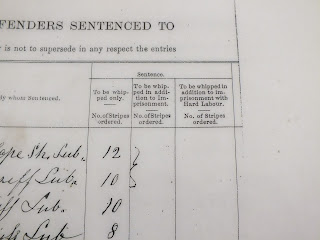 FENDERS SENTENCED TO
r is not to supersede in any respect the entries
Sentence.
By whom Sentenced.
To be whip-
ped only.
To be whip-
ped in addi-
tion to Im-
prisonment.
To be whipped in
addition to im-
prisonment with
Hard Labour.
No. of Stripes
ordered.
No. of Stripes
ordered.
No. of Stripes
ordered.
Sub. 12
riff Sub. 10
ff Sub. 10
Sub 8